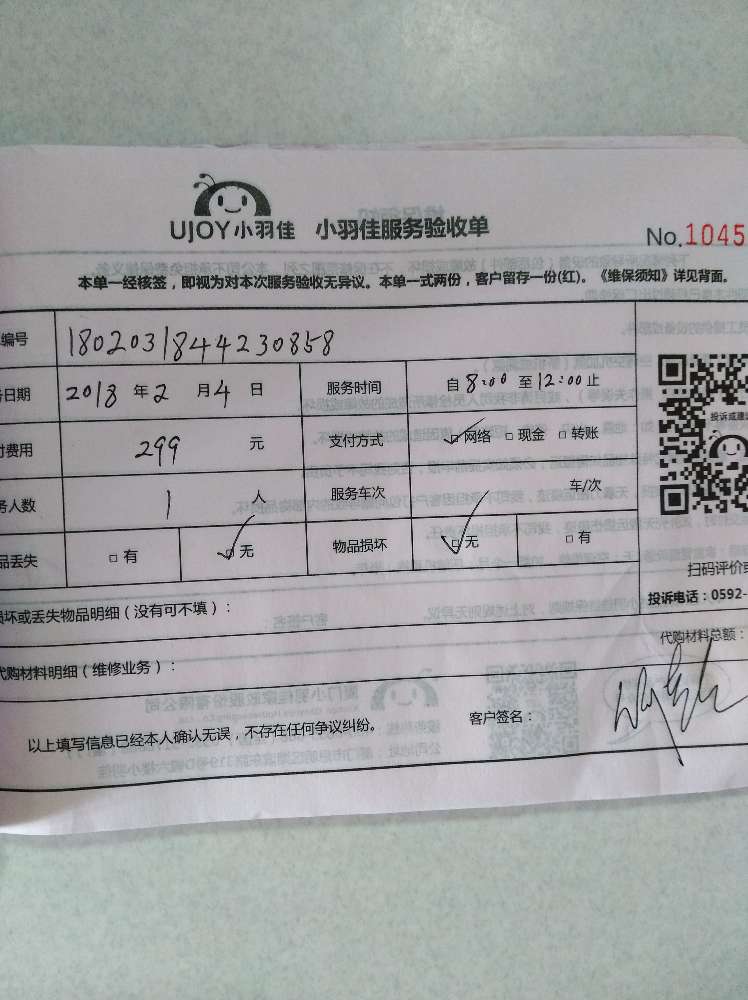 UJOY小羽佳 小羽佳服务验收单
No.1045
本单一经核签，即视为对本次服务验收无异议。本单一式两份，客户留存一份(红)。《维保须知》详见背面。
编号 180203184423085 8
日期 2018 年 2 月 4 日 服务时间 自 8:00 至 12:00 止
付费用 299 元 支付方式 ☑网络 □现金 □转账
务人数 1 人 服务车次 车/次
品丢失 □有 ☑无 物品损坏 ☑无 □有
投诉或建议
扫码评价或
投诉电话：0592-
损坏或丢失物品明细（没有可不填）：
代购材料总额：
代购材料明细（维修业务）：
以上填写信息已经本人确认无误，不存在任何争议纠纷。 客户签名：